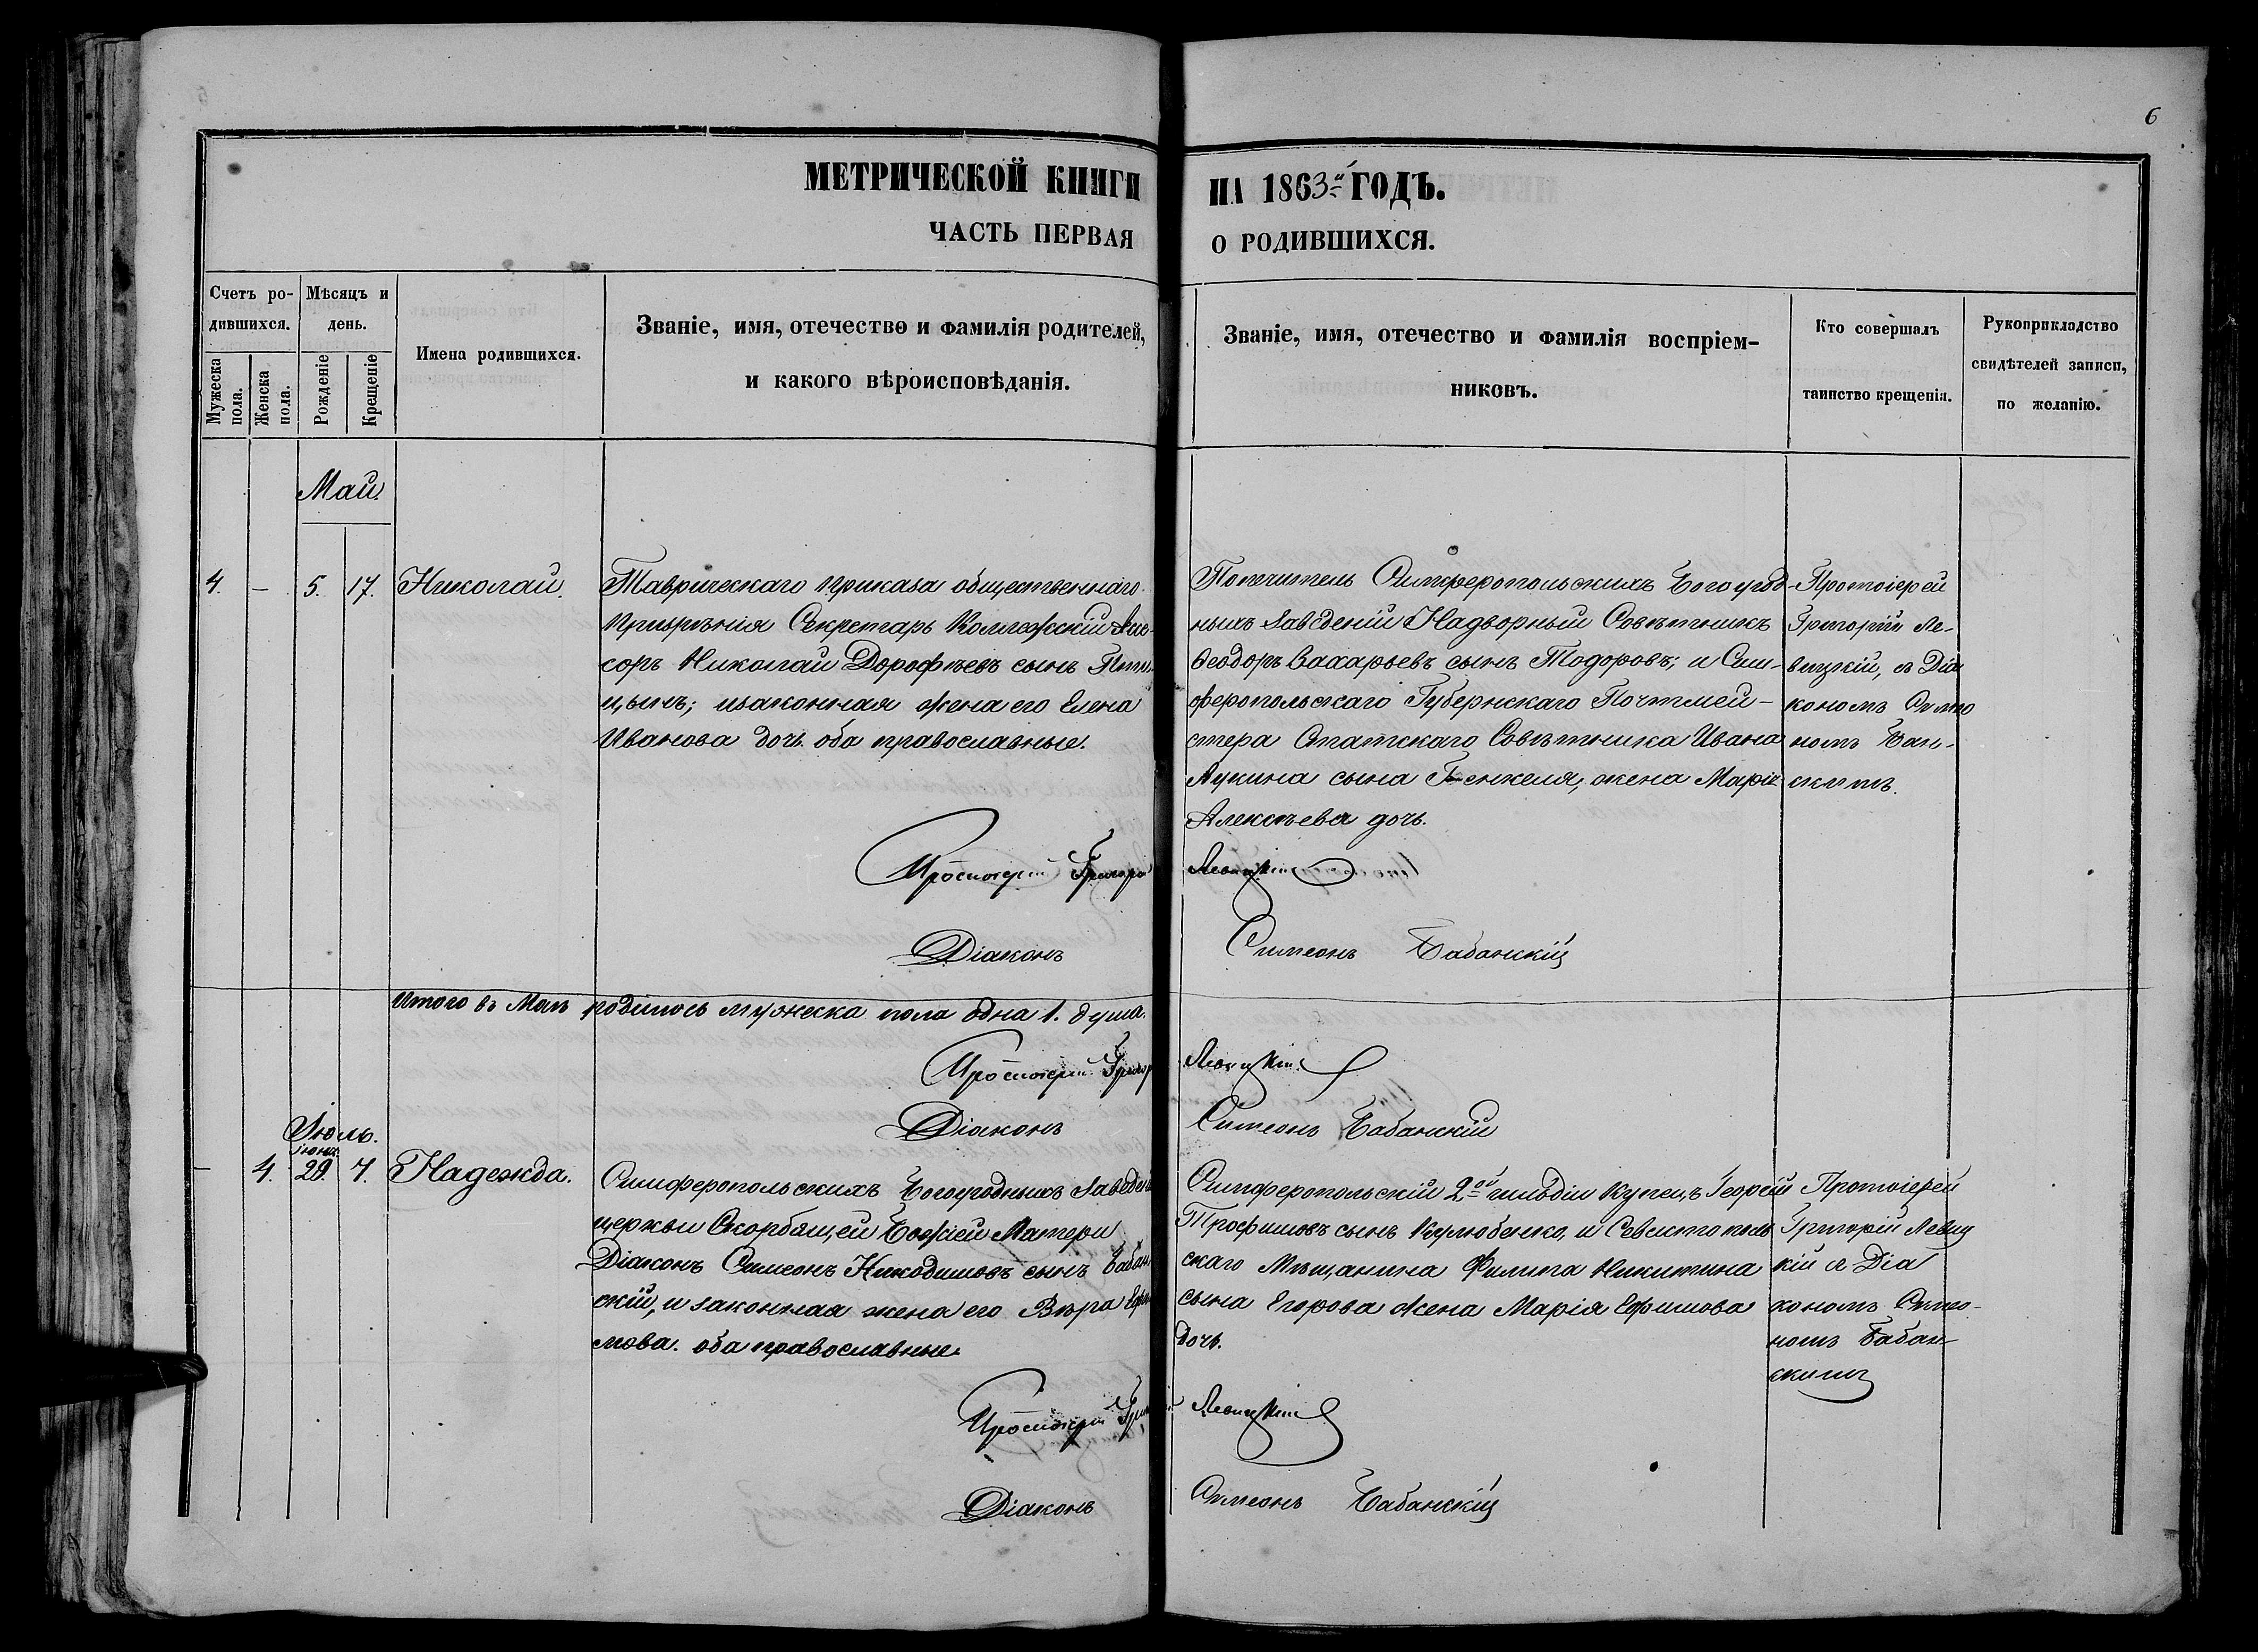 6
МЕТРИЧЕСКОЙ КНИГИ НА 1863й ГОДЪ.
ЧАСТЬ ПЕРВАЯ О РОДИВШИХСЯ.
Счетъ ро-
дившихся.
Мужеска
пола.
Женска
пола.
Мѣсяцъ и
день.
Рожденіе
Крещеніе
Имена родившихся.
Званіе, имя, отечество и фамилія родителей,
и какого вѣроисповѣданія.
Званіе, имя, отечество и фамилія воспріем-
никовъ.
Кто совершалъ
таинство крещенія.
Рукоприкладство
свидѣтелей записи,
по желанію.
Май.
4. - 5. 17. Николай.
Таврическаго приказа общественнаго
призрѣнія Секретарь Коллежскій Асес-
соръ Николай Дорофѣевъ сынъ Пти-
цынъ; изаконная жена его Елена
Иванова дочь. оба православные.
Попечитель Симферопольскихъ Богоугод-
ныхъ Заведеній Надворный Совѣтникъ
Ѳеодоръ Захарьевъ сынъ Тодоровъ; и Сим-
феропольскаго Губернскаго Почтмей-
стера Статскаго Совѣтника Ивана
Лукина сына Генкеля, жена Марія
Алексѣева дочь.
Протоіерей
Григорій Ле-
вицкій, съ Діа
кономъ Симео
номъ Бан-
скимъ.
Протоіерей Григорій Левицкій
Діаконъ Симеонъ Бабанскій
Итого въ Маѣ родилось мужеска пола одна 1. душа.
Протоіерей Григор Левицкій
Діаконъ Симеонъ Бабанскій
Іюль.
Іюня
- 4. 29. 7. Надежда.
Симферопольскихъ Богоугодныхъ Заведен
церкви Скорбящей Божіей Матери
Діаконъ Симеонъ Никодимовъ сынъ Бабан
скій, и законная жена его Вѣра Ефи
мова. оба православные.
Симферопольскій 2ой гильдіи Купецъ Георгій
Трофимовъ сынъ Кулюбенко, и Севастополь
скаго Мѣщанина Филипа Никитина
сына Егорова жена Марія Ефимова
дочь.
Протоіерей
Григорій Левиц
кій съ Діа
кономъ Симео-
номъ Бабан-
скимъ
Протоіерей Григорій Левицкій
Діаконъ Симеонъ Бабанскій